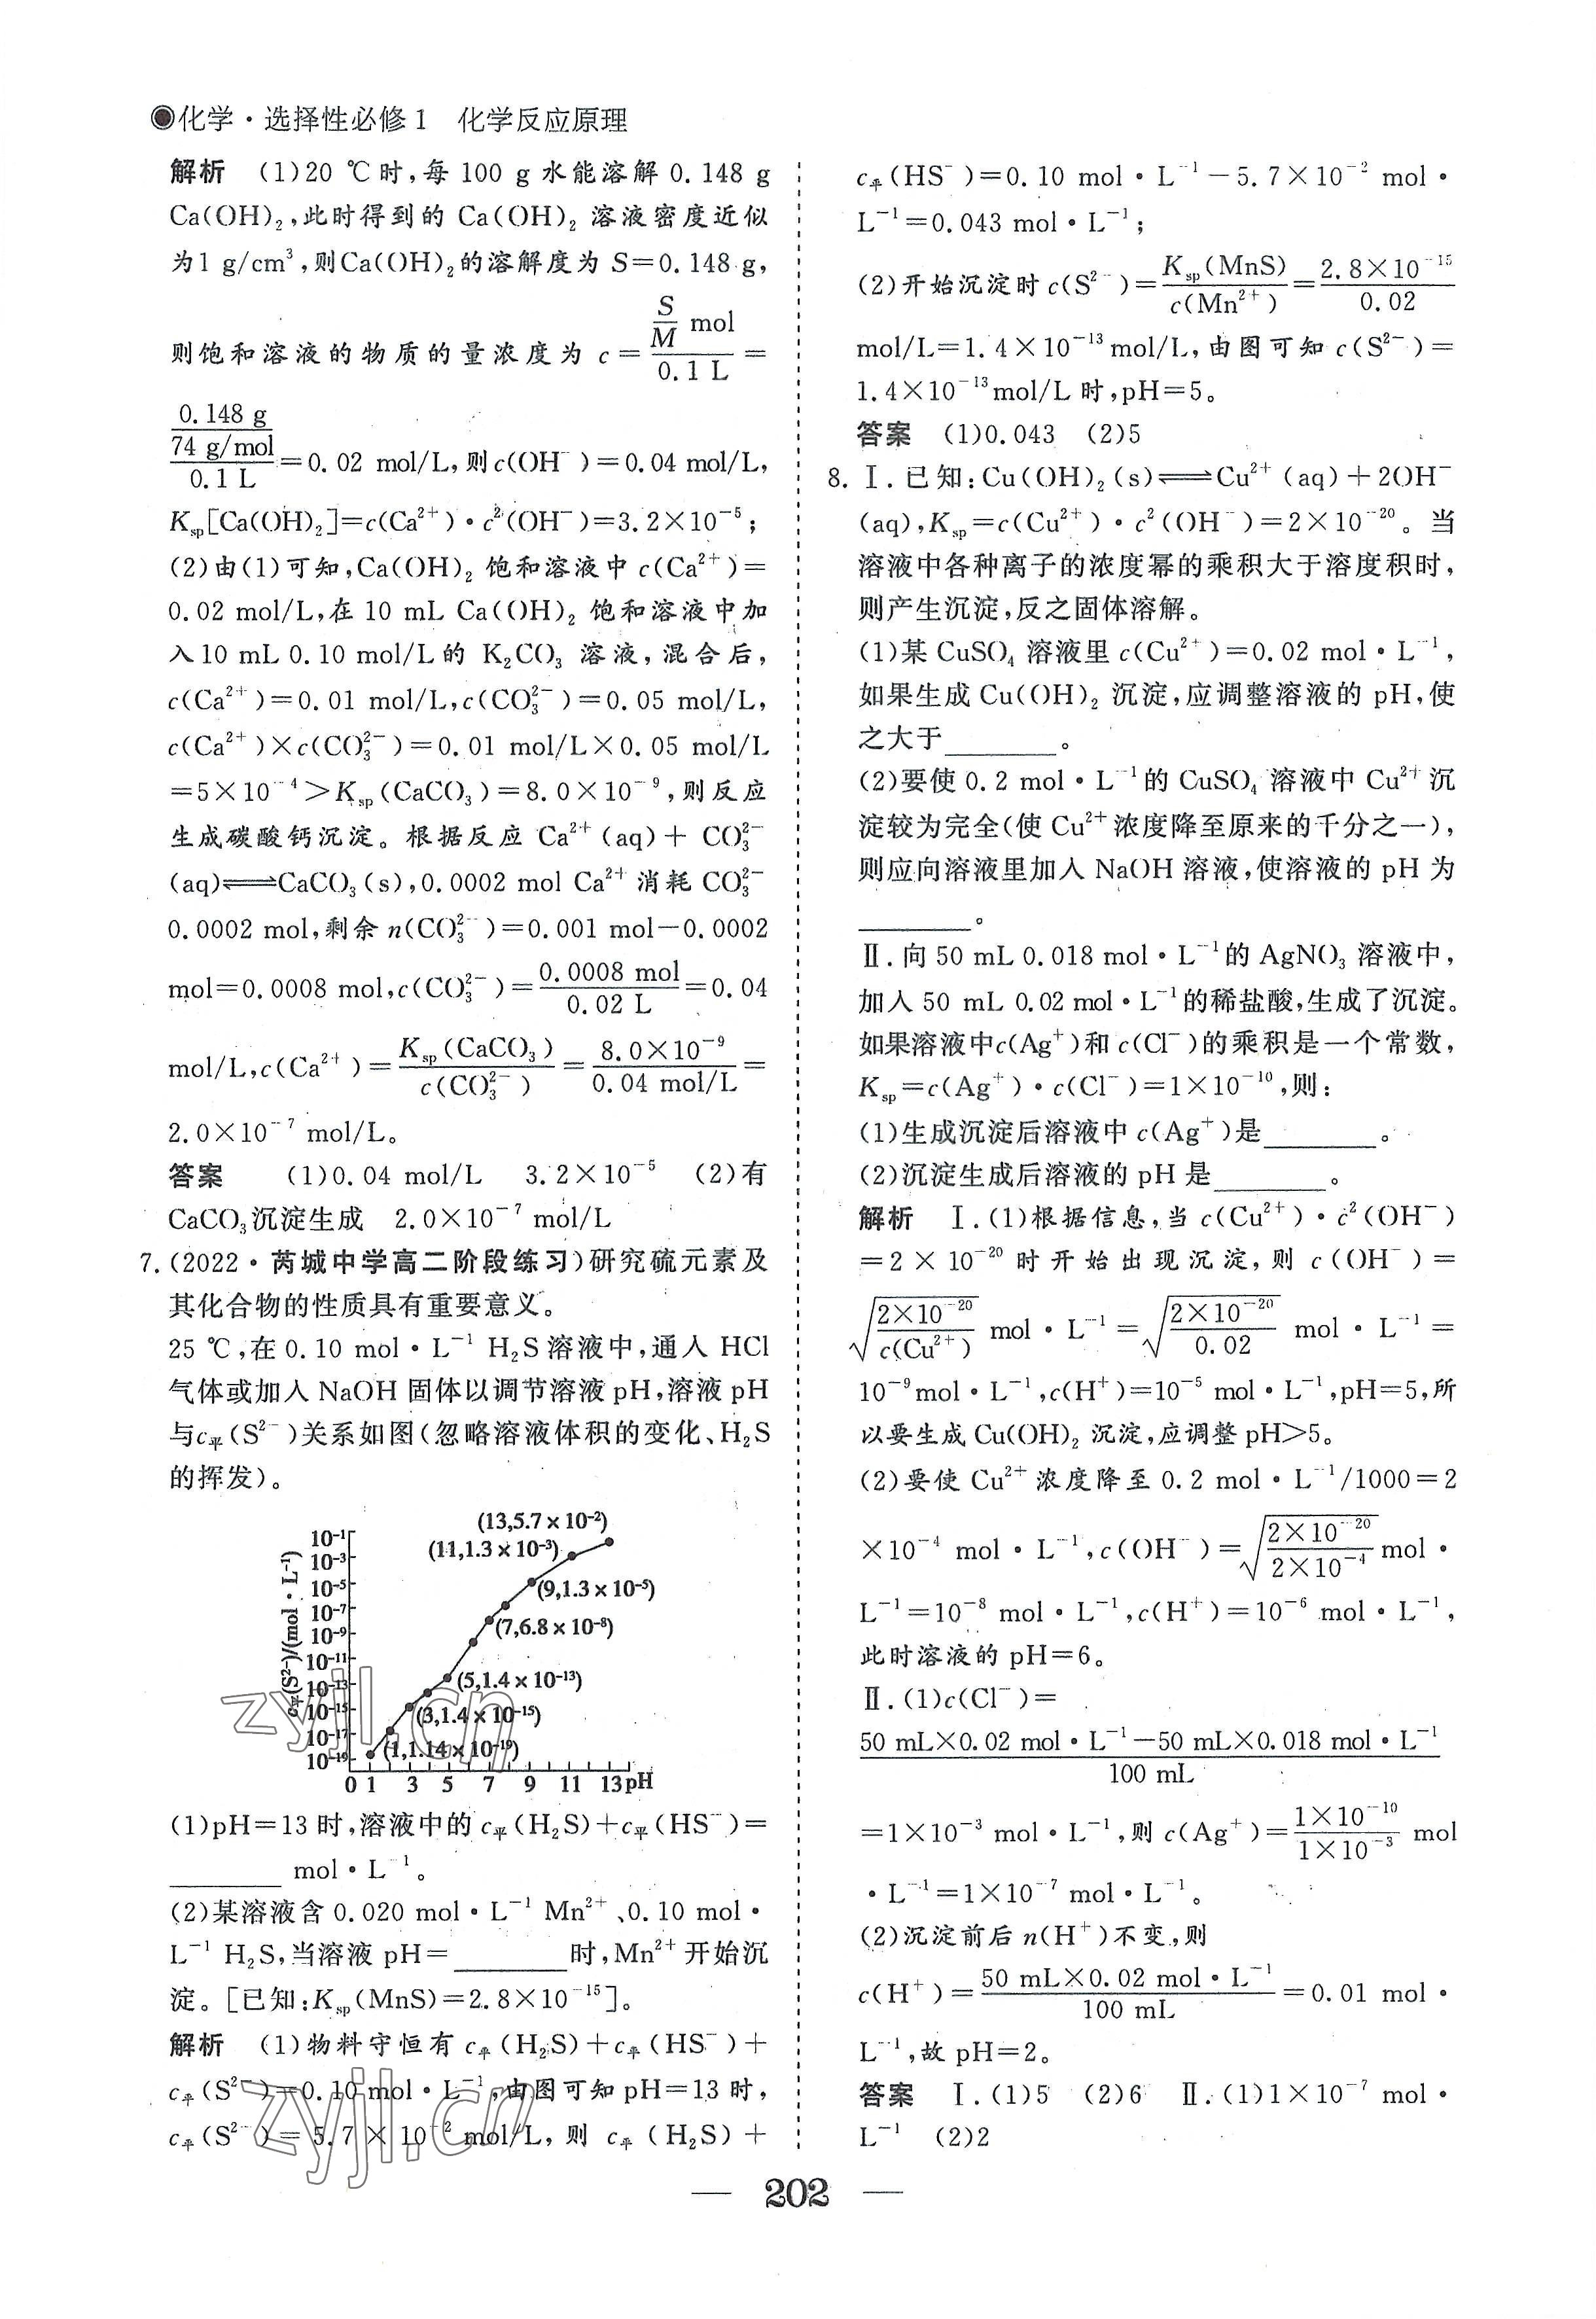 化学·选择性必修1　化学反应原理
解析　(1)20 ℃时,每 100 g 水能溶解 0.148 g
Ca(OH)₂,此时得到的 Ca(OH)₂ 溶液密度近似
为1 g/cm³,则Ca(OH)₂的溶解度为 S=0.148 g,
则饱和溶液的物质的量浓度为 c=(S/M mol)/(0.1 L)=
(0.148 g/74 g/mol)/(0.1 L)=0.02 mol/L,则c(OH⁻)=0.04 mol/L,
Ksp[Ca(OH)₂]=c(Ca²⁺)·c²(OH⁻)=3.2×10⁻⁵;
(2)由(1)可知,Ca(OH)₂ 饱和溶液中 c(Ca²⁺)=
0.02 mol/L,在 10 mL Ca(OH)₂ 饱和溶液中加
入10 mL 0.10 mol/L的 K₂CO₃ 溶液,混合后,
c(Ca²⁺)=0.01 mol/L,c(CO₃²⁻)=0.05 mol/L,
c(Ca²⁺)×c(CO₃²⁻)=0.01 mol/L×0.05 mol/L
=5×10⁻⁴>Ksp(CaCO₃)=8.0×10⁻⁹,则反应
生成碳酸钙沉淀。根据反应 Ca²⁺(aq)+ CO₃²⁻
(aq)⇌CaCO₃(s),0.0002 mol Ca²⁺消耗 CO₃²⁻
0.0002 mol,剩余 n(CO₃²⁻)=0.001 mol−0.0002
mol=0.0008 mol,c(CO₃²⁻)=0.0008 mol/0.02 L=0.04
mol/L,c(Ca²⁺)=Ksp(CaCO₃)/c(CO₃²⁻)=8.0×10⁻⁹/0.04 mol/L=
2.0×10⁻⁷ mol/L。
答案　(1)0.04 mol/L　3.2×10⁻⁵　(2)有
CaCO₃沉淀生成　2.0×10⁻⁷ mol/L
7.(2022·芮城中学高二阶段练习)研究硫元素及
其化合物的性质具有重要意义。
25 ℃,在0.10 mol·L⁻¹ H₂S溶液中,通入 HCl
气体或加入 NaOH 固体以调节溶液 pH,溶液 pH
与c平(S²⁻)关系如图(忽略溶液体积的变化、H₂S
的挥发)。
c平(S²⁻)/(mol·L⁻¹)
10⁻¹
10⁻³
10⁻⁵
10⁻⁷
10⁻⁹
10⁻¹¹
10⁻¹³
10⁻¹⁵
10⁻¹⁷
10⁻¹⁹
(13,5.7×10⁻²)
(11,1.3×10⁻³)
(9,1.3×10⁻⁵)
(7,6.8×10⁻⁸)
(5,1.4×10⁻¹³)
(3,1.4×10⁻¹⁵)
(1,1.14×10⁻¹⁹)
0 1 3 5 7 9 11 13 pH
(1)pH=13 时,溶液中的 c平(H₂S)+c平(HS⁻)=
________ mol·L⁻¹。
(2)某溶液含 0.020 mol·L⁻¹ Mn²⁺、0.10 mol·
L⁻¹ H₂S,当溶液 pH=________时,Mn²⁺开始沉
淀。[已知:Ksp(MnS)=2.8×10⁻¹⁵]。
解析　(1)物料守恒有 c平(H₂S)+c平(HS⁻)+
c平(S²⁻)=0.10 mol·L⁻¹,由图可知 pH=13 时,
c平(S²⁻)=5.7×10⁻² mol/L,则 c平(H₂S)+
c平(HS⁻)=0.10 mol·L⁻¹−5.7×10⁻² mol·
L⁻¹=0.043 mol·L⁻¹;
(2)开始沉淀时 c(S²⁻)=Ksp(MnS)/c(Mn²⁺)=2.8×10⁻¹⁵/0.02
mol/L=1.4×10⁻¹³mol/L,由图可知 c(S²⁻)=
1.4×10⁻¹³mol/L 时,pH=5。
答案　(1)0.043　(2)5
8.Ⅰ.已知:Cu(OH)₂(s)⇌Cu²⁺(aq)+2OH⁻
(aq),Ksp=c(Cu²⁺)·c²(OH⁻)=2×10⁻²⁰。当
溶液中各种离子的浓度幂的乘积大于溶度积时,
则产生沉淀,反之固体溶解。
(1)某 CuSO₄ 溶液里 c(Cu²⁺)=0.02 mol·L⁻¹,
如果生成 Cu(OH)₂ 沉淀,应调整溶液的 pH,使
之大于________。
(2)要使 0.2 mol·L⁻¹的 CuSO₄ 溶液中 Cu²⁺沉
淀较为完全(使 Cu²⁺浓度降至原来的千分之一),
则应向溶液里加入 NaOH 溶液,使溶液的 pH 为
________。
Ⅱ.向50 mL 0.018 mol·L⁻¹的 AgNO₃ 溶液中,
加入 50 mL 0.02 mol·L⁻¹的稀盐酸,生成了沉淀。
如果溶液中c(Ag⁺)和c(Cl⁻)的乘积是一个常数,
Ksp=c(Ag⁺)·c(Cl⁻)=1×10⁻¹⁰,则:
(1)生成沉淀后溶液中 c(Ag⁺)是________。
(2)沉淀生成后溶液的 pH 是________。
解析　Ⅰ.(1)根据信息,当 c(Cu²⁺)·c²(OH⁻)
=2×10⁻²⁰ 时开始出现沉淀,则 c(OH⁻)=
√(2×10⁻²⁰/c(Cu²⁺)) mol·L⁻¹=√(2×10⁻²⁰/0.02) mol·L⁻¹=
10⁻⁹mol·L⁻¹,c(H⁺)=10⁻⁵ mol·L⁻¹,pH=5,所
以要生成 Cu(OH)₂ 沉淀,应调整 pH>5。
(2)要使 Cu²⁺浓度降至 0.2 mol·L⁻¹/1000=2
×10⁻⁴ mol·L⁻¹,c(OH⁻)=√(2×10⁻²⁰/2×10⁻⁴)mol·
L⁻¹=10⁻⁸ mol·L⁻¹,c(H⁺)=10⁻⁶ mol·L⁻¹,
此时溶液的 pH=6。
Ⅱ.(1)c(Cl⁻)=
(50 mL×0.02 mol·L⁻¹−50 mL×0.018 mol·L⁻¹)/100 mL
=1×10⁻³ mol·L⁻¹,则 c(Ag⁺)=1×10⁻¹⁰/1×10⁻³ mol
·L⁻¹=1×10⁻⁷ mol·L⁻¹。
(2)沉淀前后 n(H⁺)不变,则
c(H⁺)=50 mL×0.02 mol·L⁻¹/100 mL=0.01 mol·
L⁻¹,故 pH=2。
答案　Ⅰ.(1)5　(2)6　Ⅱ.(1)1×10⁻⁷ mol·
L⁻¹　(2)2
— 202 —
zyjl.cn
zyjl.cn